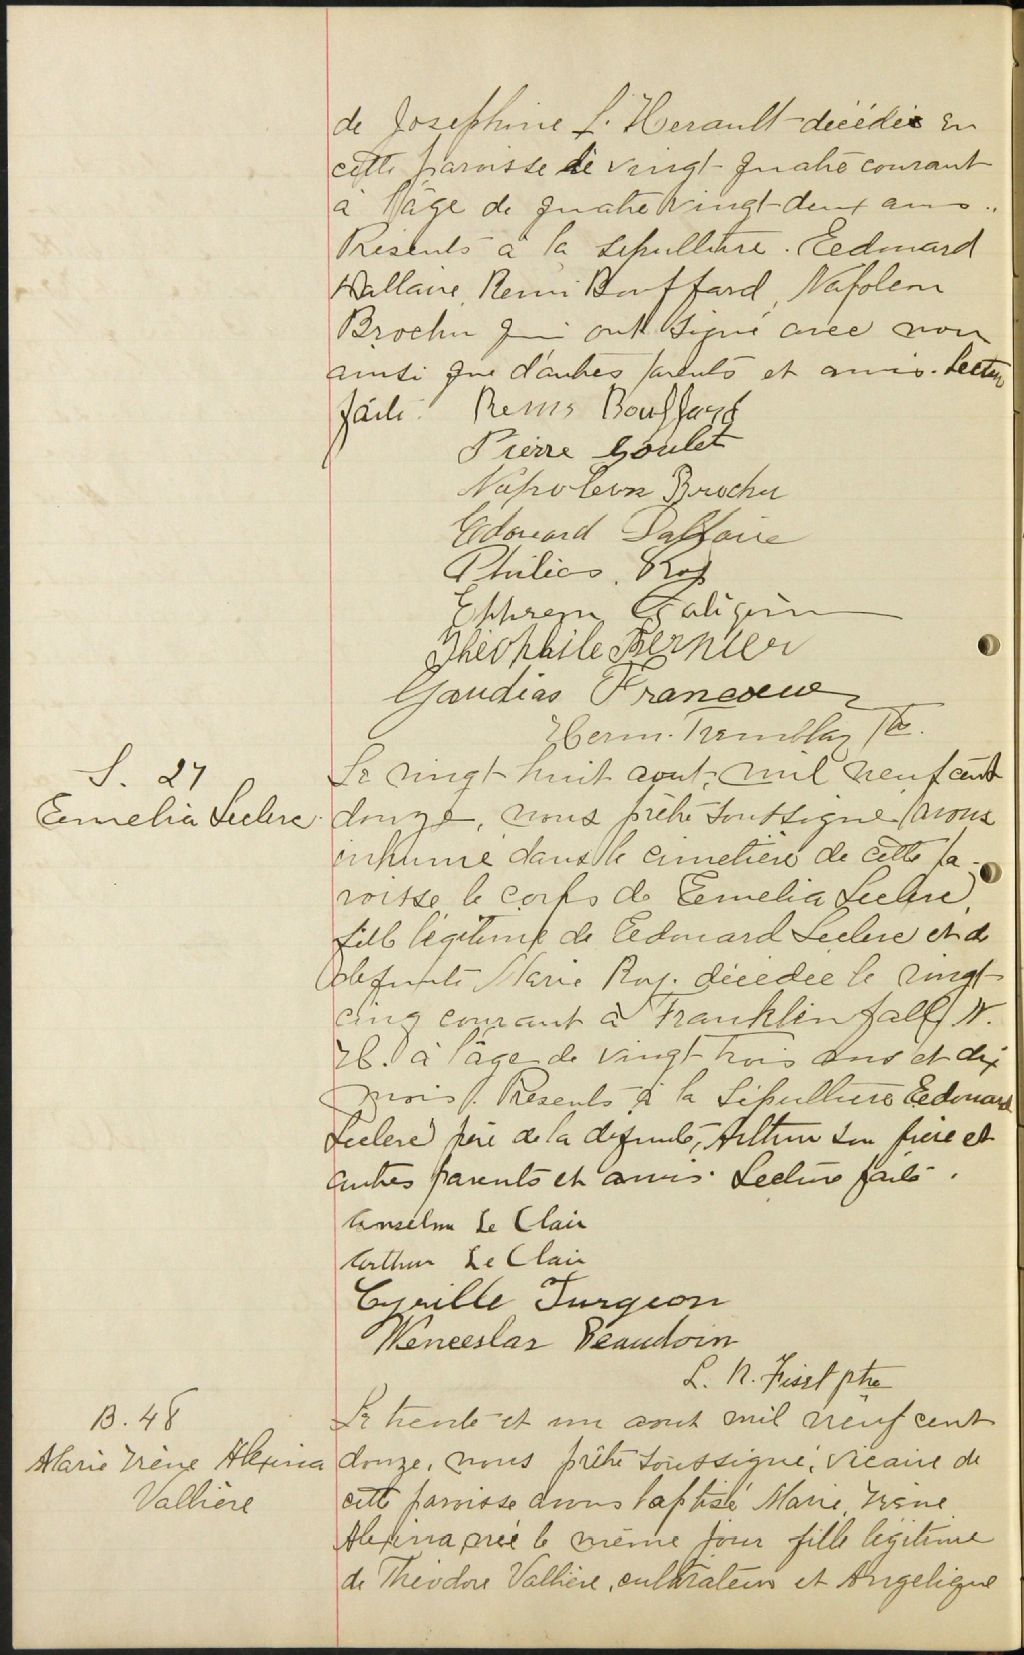 de Josephine L'Herault décédée en
cette paroisse le vingt quatre courant
à l'âge de quatre vingt-deux ans.
Présents à la sépulture. Eedouard
Dallaire, Remi Bouffard, Napoleon
Brochu qui ont signé avec nous
ainsi que d'autres parents et amis. Lecture
faite. Remis Bouffard
Pierre Goulet
Napoleon Brochu
Edouard Dallaire
Philias Roy
Ephrem
Théophile Bernier
Gaudias Francoeur
Herm. Tremblay Ptre.
S. 27
Eemelia Leclerc
Le vingt huit aout, mil neuf cent
douze, nous prêtre soussigné avons
inhumé dans le cimetière de cette pa-
roisse le corps de Eemelia Leclerc,
fille légitime de Eedouard Leclerc et de
defunte Marie Roy. décédée le vingt
cinq courant à Franklin fall, N.
H. à l'âge de vingt trois ans et dix
mois. Présents à la sépulture Eedouard
Leclerc père de la defunte, Arthur son frère et
autres parents et amis. Lecture faite.
Anselm Le Clair
Arthur Le Clair
Cyrille Turgeon
Wenceslas Beaudoin
L. N. Fiset ptre
B. 48
Marie Irène Alexina
Vallière
Le trente et un aout mil neuf cent
douze, nous prêtre soussigné, vicaire de
cette paroisse avons baptisé Marie, Irène
Alexina, née le même jour fille légitime
de Théodore Vallière, cultivateur et Angelique